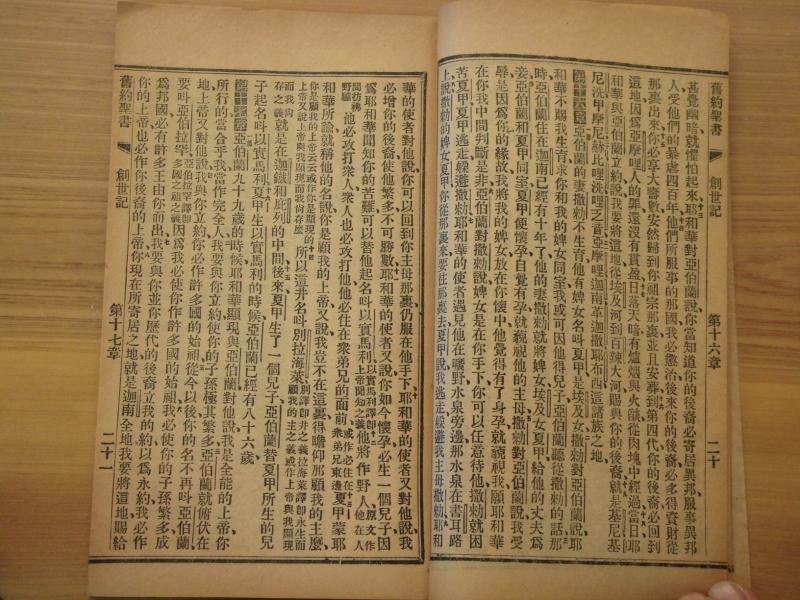 舊約聖書 創世記 第十六章 二十
甚覺幽暗就懼怕起來十三耶和華對亞伯蘭說你當知道你的後裔必寄居異邦服事異邦
人受他們的暴虐四百年他們所服事的那國我必懲治後來你的後裔必多得貲財從
那裏出來你必享大壽數安然歸到你祖宗那裏並且安葬到第四代你的後裔必回到
這地因爲亞摩哩人的罪還沒有貫盈日落天暗有爐烟與火燄從肉塊中經過當日耶
和華與亞伯蘭立約說我要將這地從埃及河到百辣大河賜與你的後裔就是基尼基
尼洗甲摩尼赫比哩洗哩乏音亞摩哩迦南革迦撒耶布西這諸族之地
第十六章亞伯蘭的妻撒勑不生育他有婢女名呌夏甲是埃及女撒勑對亞伯蘭說耶
和華不賜我生育求你和我的婢女同室我或可因他得兒子亞伯蘭聽從撒勑的話那
時亞伯蘭住在迦南已經有十年了他的妻撒勑就將婢女埃及女夏甲給他的丈夫爲
妾亞伯蘭和夏甲同室夏甲便懷孕自覺有孕就藐視他的主母撒勑對亞伯蘭說我受
辱是因爲你的緣故我將我的婢女放在你懷中他覺得有了身孕就藐視我願耶和華
在你我中間判斷是非亞伯蘭對撒勑說婢女是在你手下你可以任意待他撒勑就困
苦夏甲夏甲逃走躱避撒勑耶和華的使者遇見他在曠野水泉旁邊那水泉在書珥路
上說撒勑的婢女夏甲你從那裏來要往那裏去夏甲說我逃走躱避我主母撒勑耶和
華的使者對他說你可以回到你主母那裏仍服在他手下耶和華的使者又對他說我
必增你的後裔使他繁多不可勝數耶和華的使者又說你如今懷孕必生一個兒子因
爲耶和華聞知你的苦難可以替他起名呌以實馬利以實馬利譯卽上帝聞知之義他將作野人原文作他在人間彷彿野驢
他必攻打衆人衆人也必攻打他他必住在衆弟兄的面前或作必住在衆弟兄東邊夏甲蒙耶
和華所諭就稱他的名說你是顧我的上帝又說我豈不在這裏得瞻仰那顧我的主麼
你是顧我的上帝云云或作你是顯現的上帝又說上帝與我顯現而我尙存麼所以這井名呌別拉海萊別譯卽井之義拉海萊譯卽永生而顧我的主之義或作上帝與我顯現
而我尙存之義就是在迦鐵和庇列的中間後來夏甲生了一個兒子亞伯蘭替夏甲所生的兒
子起名呌以實馬利夏甲生以實馬利的時候亞伯蘭已經有八十六歲
第十七章亞伯蘭九十九歲的時候耶和華顯現與亞伯蘭對他說我是全能的上帝你
所行的當合乎我當作完全人我要與你立約使你的子孫極其繁多亞伯蘭就俯伏在
地上帝又對他說我與你立約你必作許多國的始祖從今以後你的名不再呌亞伯蘭
要呌亞伯拉罕亞伯拉罕譯卽多國之祖之義因爲我必使你作許多國的始祖我必使你的子孫繁多成
爲邦國必有許多王由你而出我要與你並你歷代的後裔立我的約以爲永約我必作
你的上帝也必作你後裔的上帝你現在所寄居之地就是迦南全地我要將這地賜給
舊約聖書 創世記 第十七章 二十一